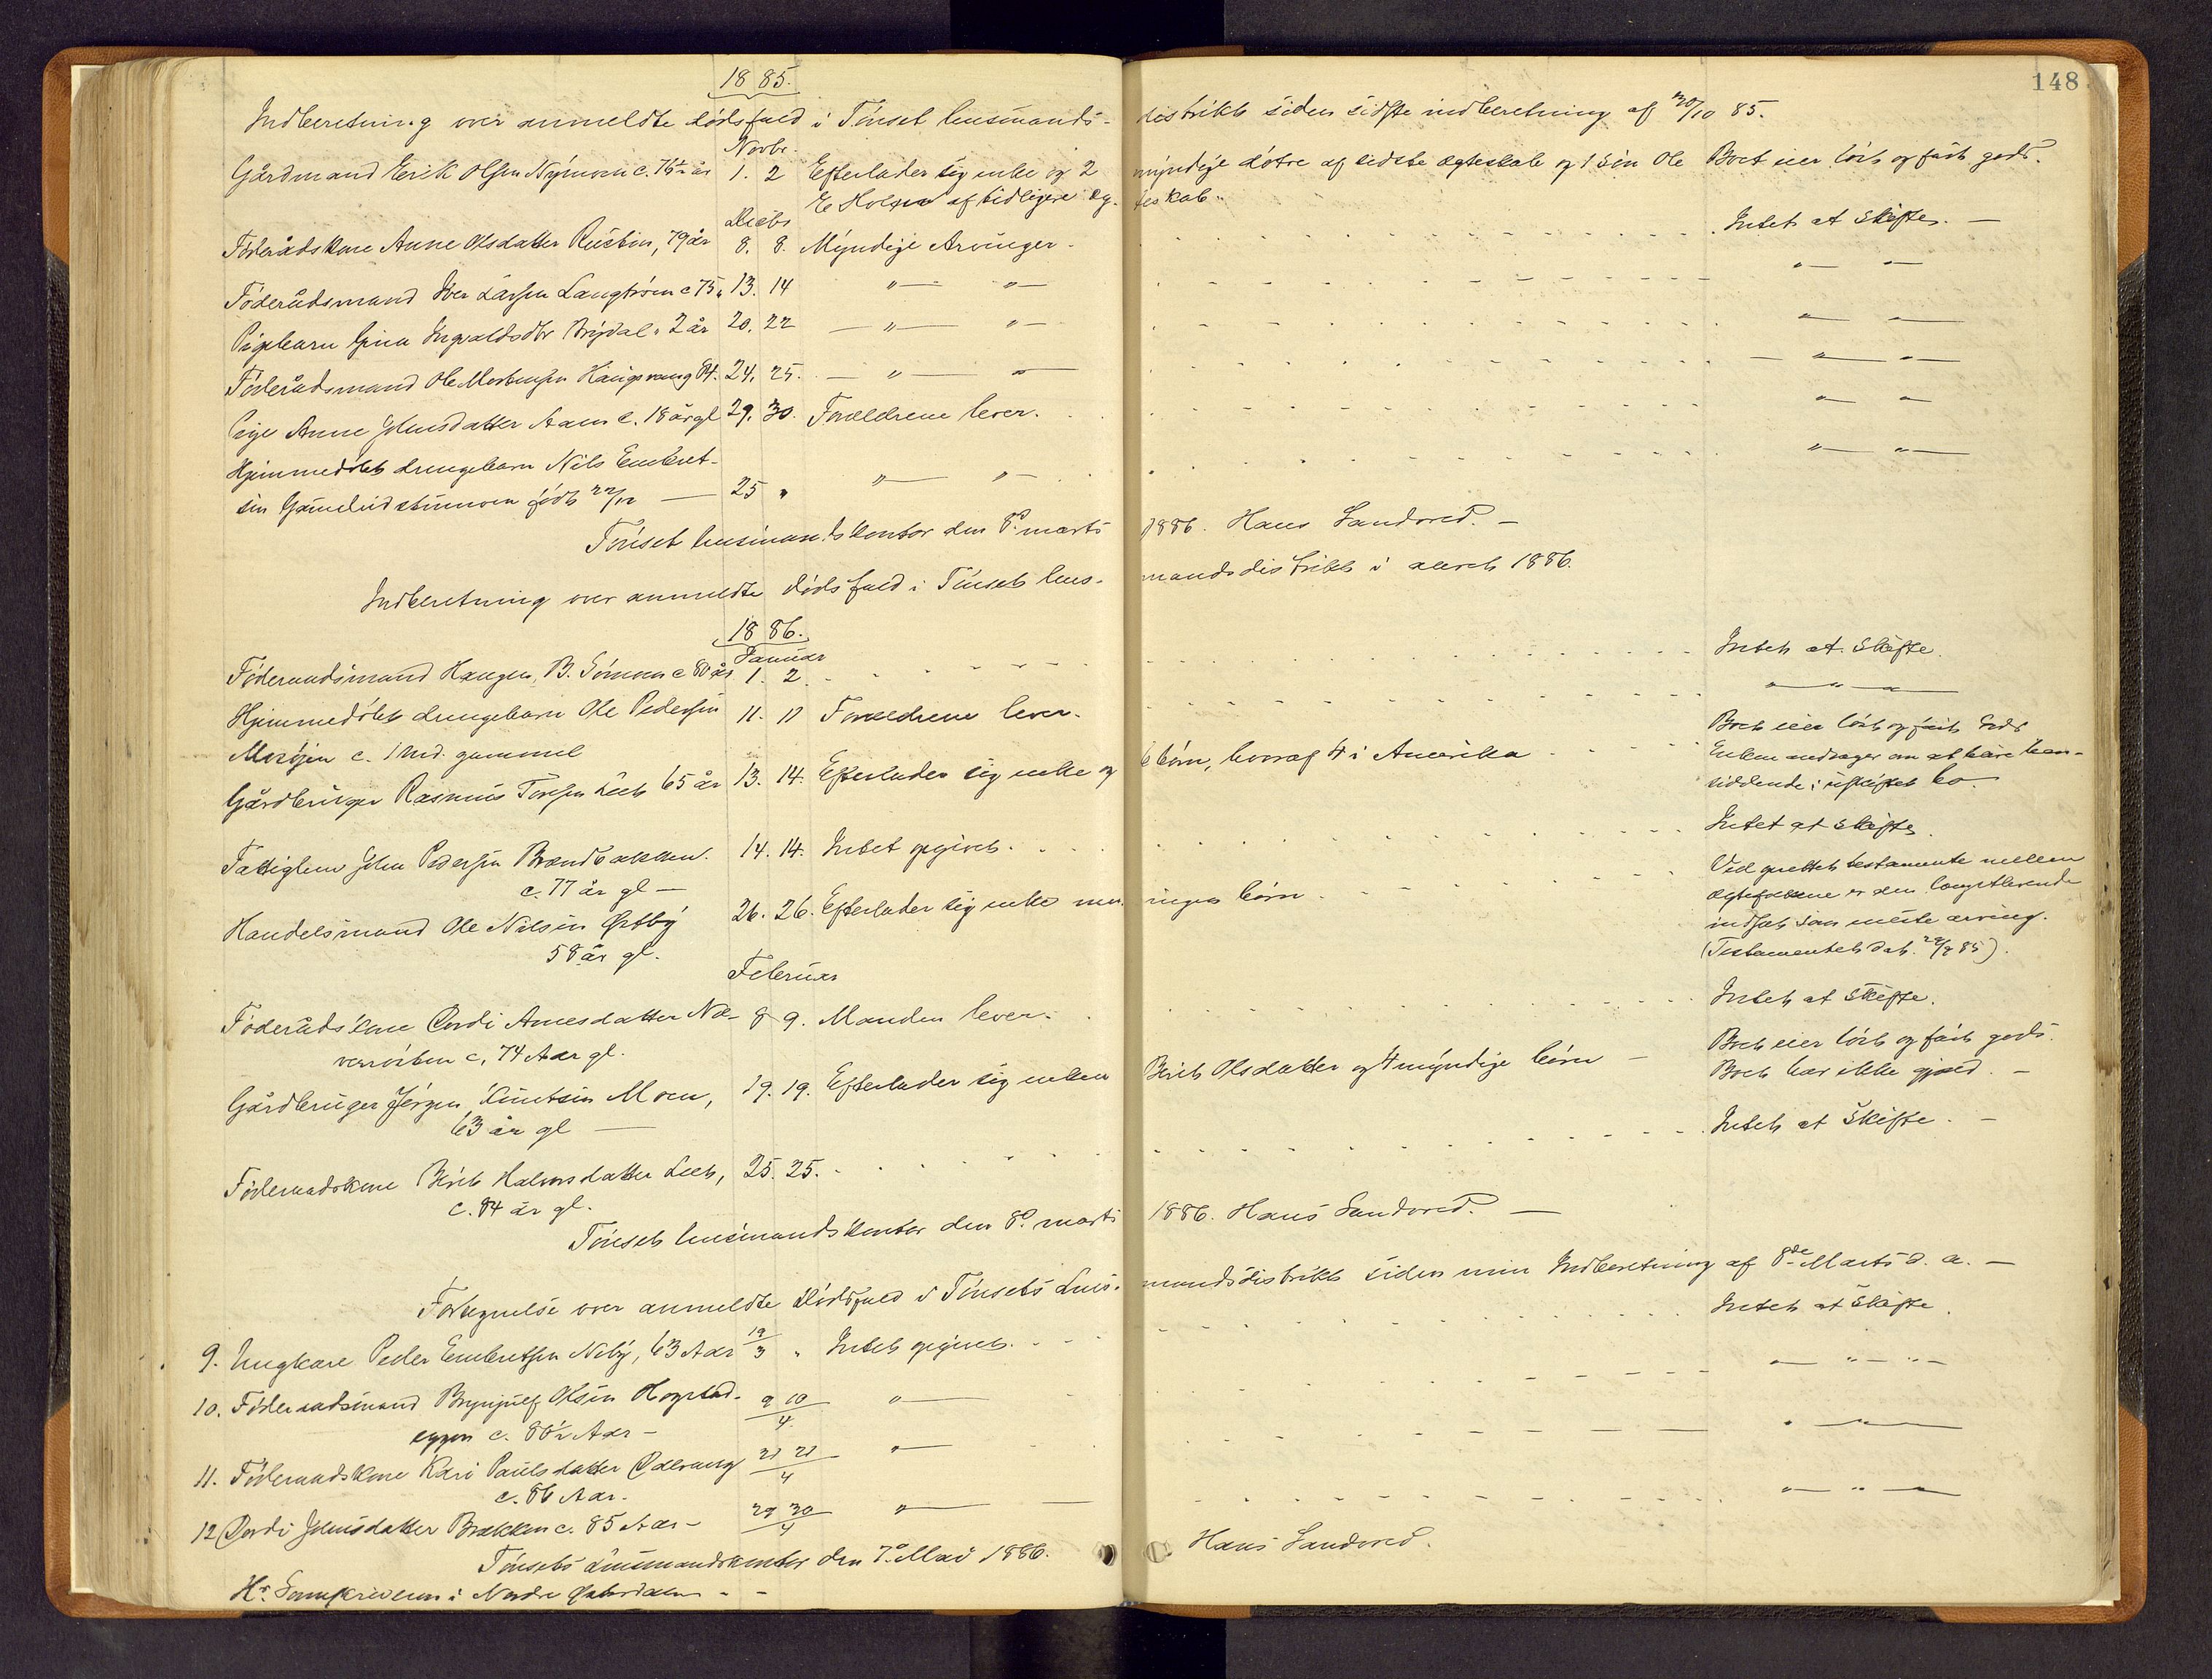 148
1885.
Indberetning over anmeldte dødsfald i Tönset lensmands- distrikt siden sidste indberetning af 20/10 85.
Novbr.
Gårdmand Erik Olsen Nymoen c. 76½ år 1. 2 Efterlader sig enke og 2 myndige døtre af sidste ægteskab og 1 sön Ole Boet eier löst og fast gods.
E Holsen af tidligere æg- teskab.
Decbr
Föderådskone Anne Olsdatter Rusten, 79 år 8. 8. Myndige Arvinger - Intet at skifte. —
Föderådsmand Iver Larsen Langtröen c 75 " 13. 14 " — " — " — " —
Pigebarn Gina Ingvaldsdtr Brydal " 2 år 20. 22 — " — " — " — " —
Föderådsmand Ole Mortensen Haugsvang 84. 24. 25. — " — " — — " — " —
Pige Anne Johnsdatter Aaen c. 18 år gl 29. 30. Forældrene lever. " — "
Hjemmedöbt drengebarn Nils Embret-
sen Gameleidstumoen födt 22/12 — 25 " " — " — " — " —
Tönset lensmandskontor den 8de marts 1886. Hans Sandvad. —
Indberetning over anmeldte dødsfald i Tönset lens- mandsdistrikt i aaret 1886.
1886.
Januar
Föderaadsmand Haagen B. Tömmen c 80 år 1. 2. Intet at skifte.
Hjemmedöbt drengebarn Ole Pedersen 11. 11 Forældrene lever. " — " —
Mosöjen c. 1 Md. gammel
Gårdbruger Rasmus Torsen Leet 65 år 13. 14. Efterlader sig enke og 6 börn, hvoraf 4 i Amerika Boet eier löst og fast Gods
Enken andrager om at være hen-
siddende i uskiftet bo.
Fattiglem John Pedersen Brændbakken. 14. 14. Intet opgivet. Intet at skifte.
c. 77 år gl —
Handelsmand Ole Nilsen Østby 26. 26. Efterlader sig enke men ingen börn Ved oprettet testamente mellem
58 år gl. ægtefolkene er den længstlevende
indsat som eneste arving.
(Testamentets dat. 22/2 85).
Februar
Föderådskone Cordi Arnesdatter Næ- 8 9. Manden lever. Intet at skifte.
verröstem c. 74 Aar gl.
Gårdbruger Jörgen Knutsen Moen, 19. 19. Efterlader sig enken Berit Olsdatter og 4 myndige börn — Boet eier löst og fast gods.
63 år gl — Boet har ikke gjæld. —
Föderaadskone Berit Halvorsdatter Leet, 25. 25. Intet at skifte. —
c. 84 år gl.
Tönset lensmandskontor den 8de marts 1886. Hans Sandvad. —
Fortegnelse over anmeldte Dödsfald i Tönsets Lens- mandsdistrikt siden min Indberetning af 8de Marts d. a. —
9. Ungkare Peder Embretsen Neby, 63 Aar 19/3 " Intet opgivet. Intet at skifte.
10. Föderaadsmand Brynjulf Olsen Hogstad- 9 10/4 " — — " — " —
eggen c. 80½ Aar —
11. Föderaadskone Kari Paulsdatter Ødevang 21 21/4 " — " — " —
c. 86 Aar.
12 Cordi Johnsdatter Brækken c. 85 Aar — 29 30/4 " — — " — " —
Tönsets Lensmandskontor den 7de Mai 1886. Hans Sandvad.
Hr. Sorenskriveren i Nordre Østerdalen